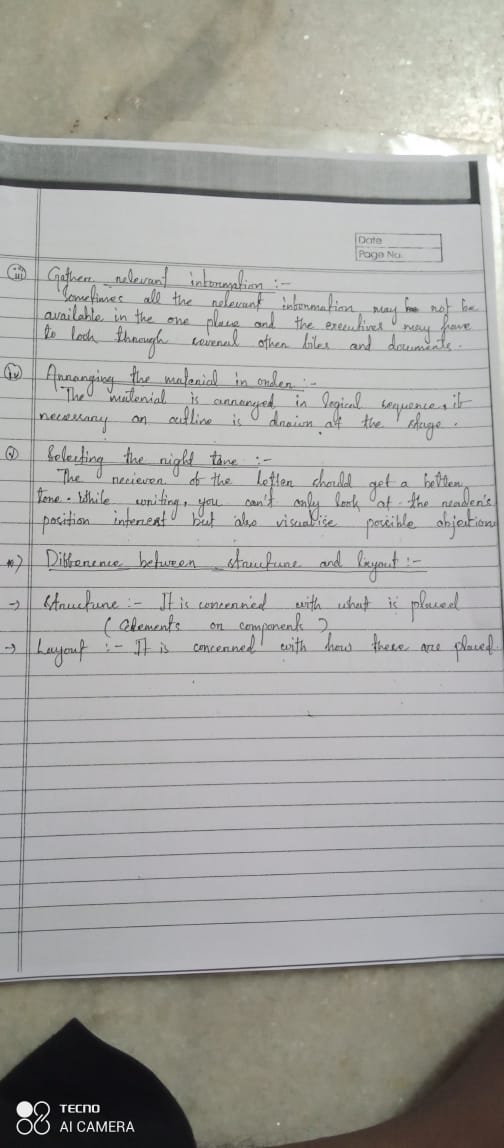 Date
Page No.
(iii) Gather relevant information :-
Sometimes all the relevant information may not be
available in the one place and the executives may have
to look through several other files and documents.
(iv) Arranging the material in order :-
The material is arranged in logical sequence, if
necessary an outline is drawn at the stage.
(v) Selecting the right tone :-
The reciever of the letter should get a better
tone. While writing, you can't only look at the reader's
position interest but also visualise possible objections
*) Difference between structure and layout :-
→ Structure :- It is concerned with what is placed
(elements or components)
→ Layout :- It is concerned with how these are placed.
TECNO
AI CAMERA